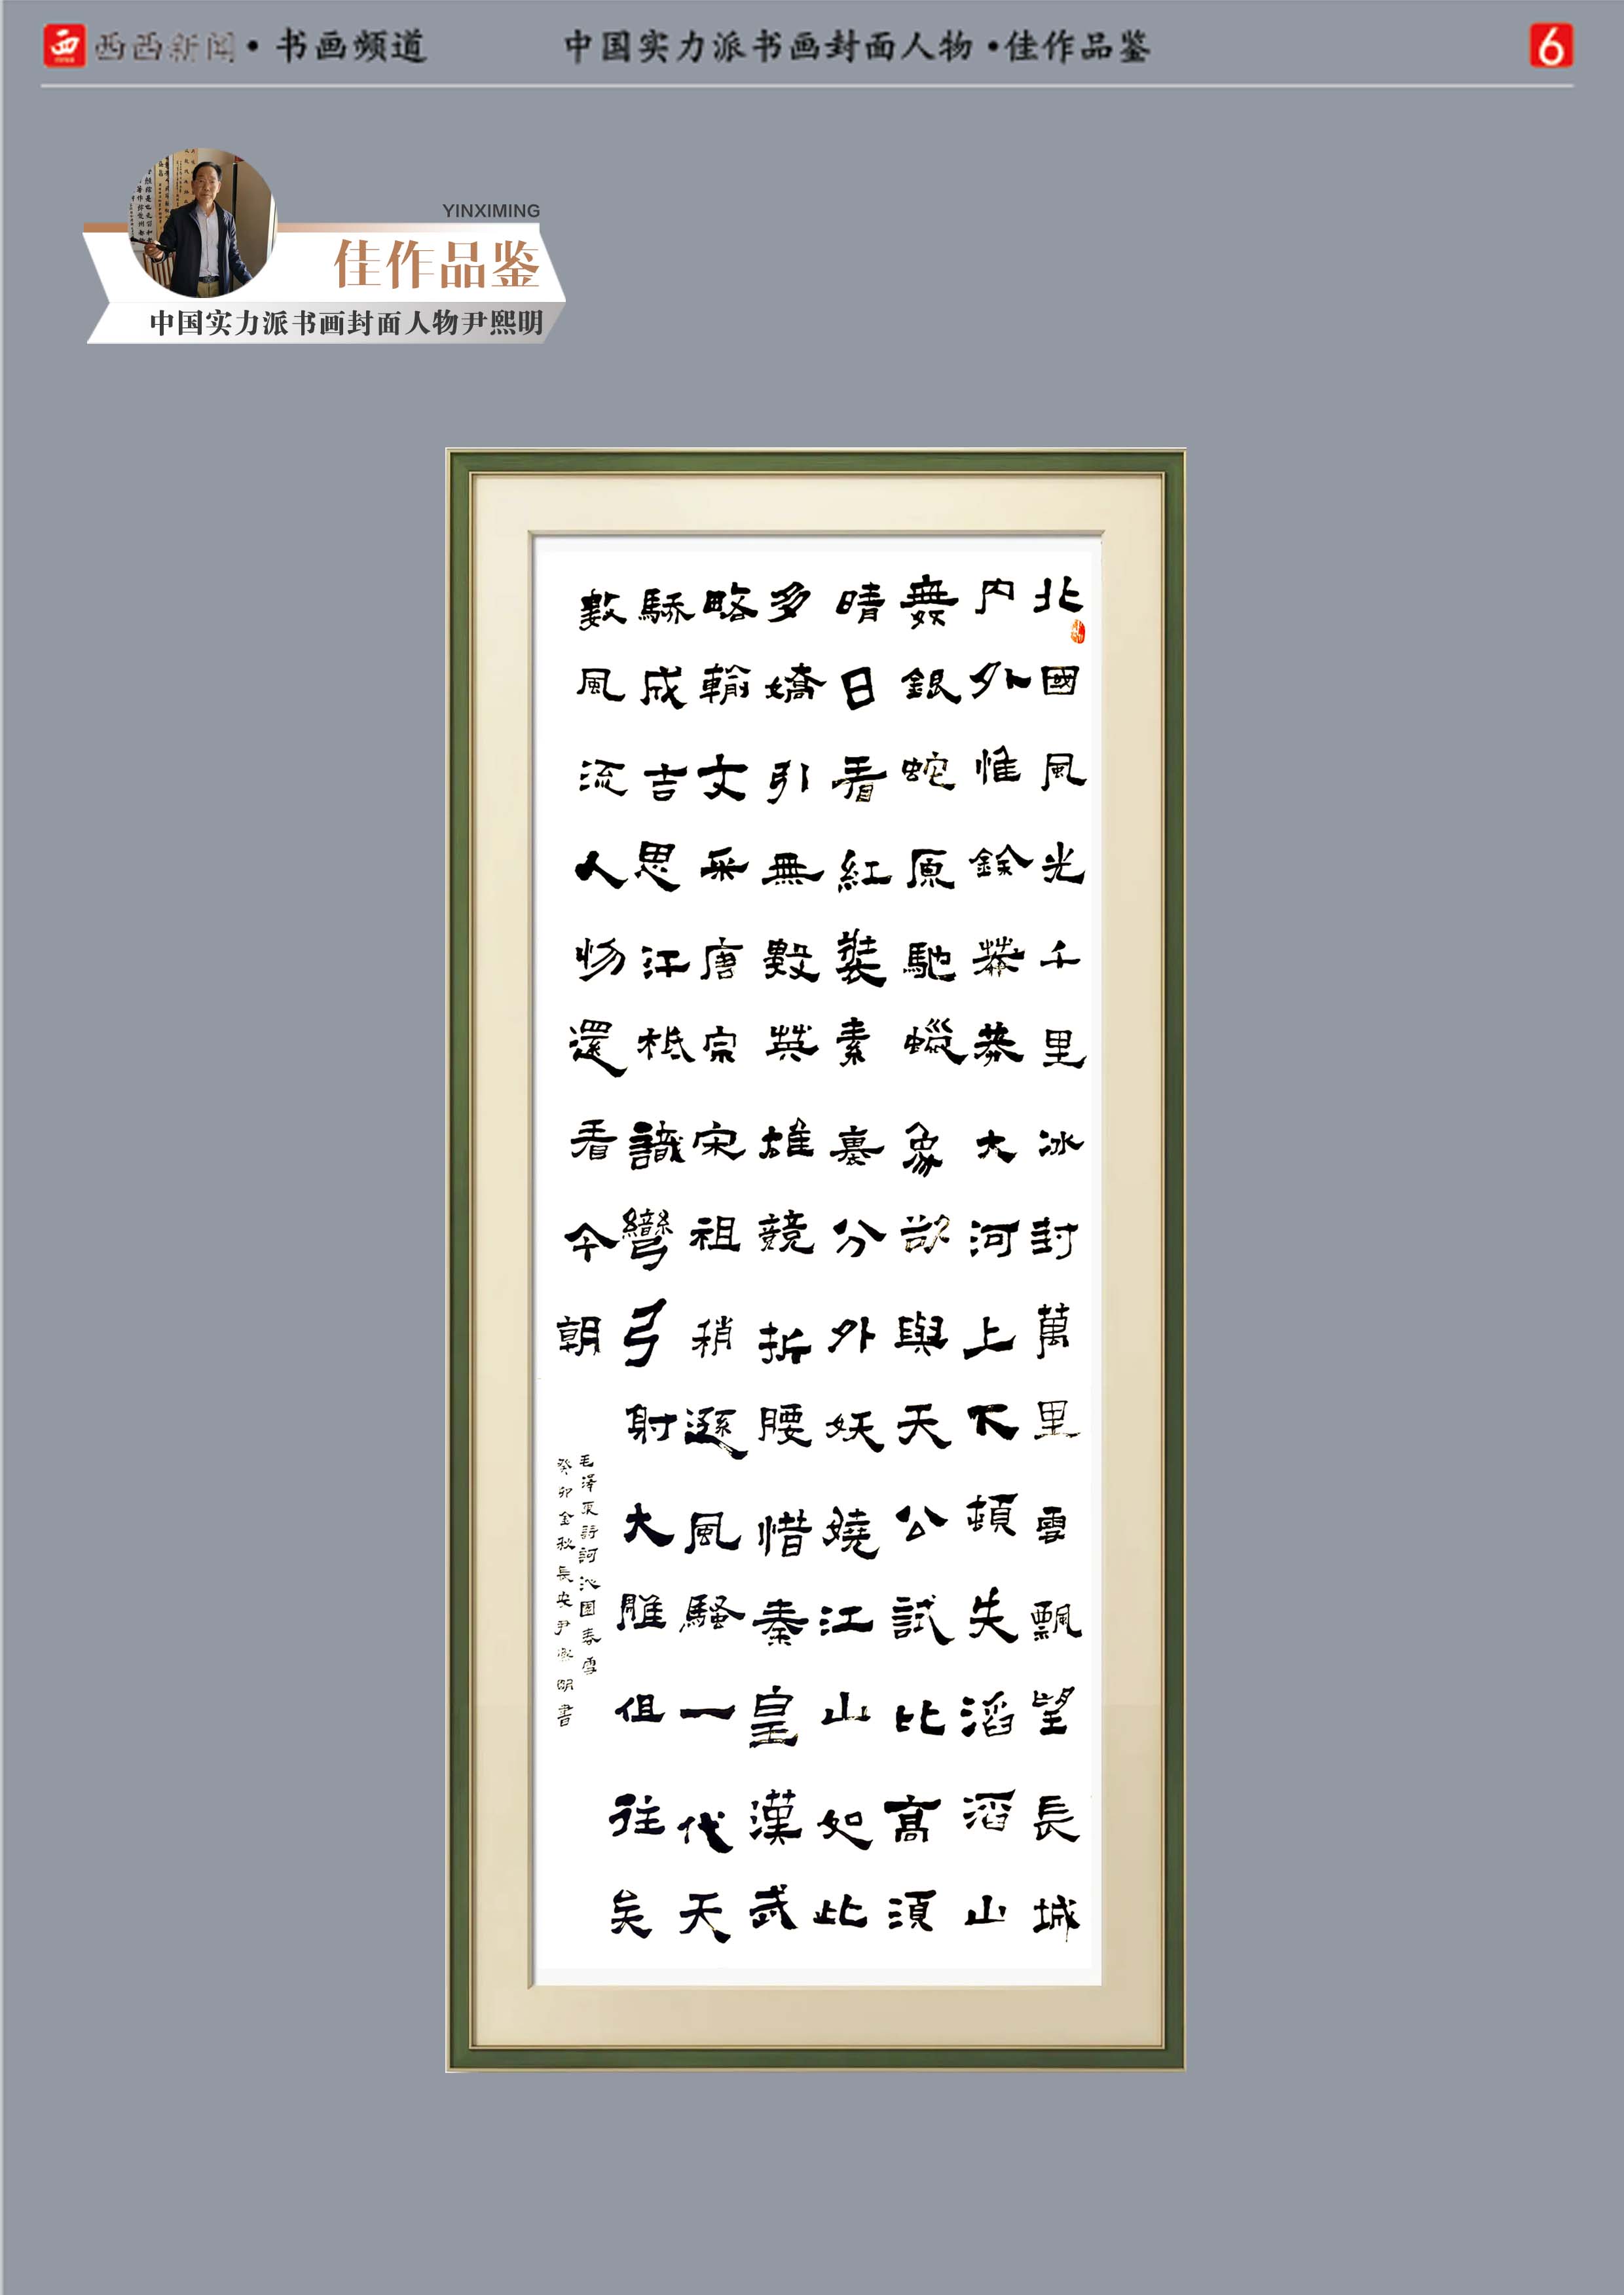 西西新闻·书画频道
中国实力派书画封面人物·佳作品鉴
6
YINXIMING
佳作品鉴
中国实力派书画封面人物尹熙明
北國風光千里冰封萬里雪飄望長城
內外惟餘莽莽大河上下頓失滔滔山
舞銀蛇原馳蠟象欲與天公試比高須
晴日看紅裝素裹分外妖嬈江山如此
多嬌引無數英雄競折腰惜秦皇漢武
略輸文采唐宗宋祖稍遜風騷一代天
驕成吉思汗柢識彎弓射大雕俱往矣
數風流人物還看今朝
毛澤東詩詞沁園春雪
癸卯金秋長安尹熙明書